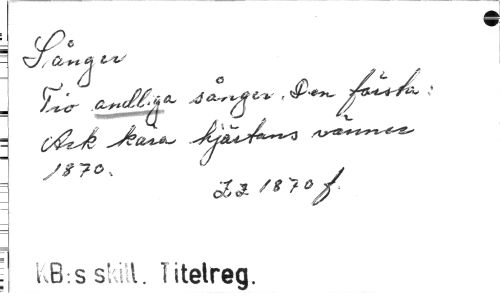 Sånger
Tio andliga sånger. Den första:
Ack kära hjärtans vänner
1870.
ZZ 1870 f.
KB:s skill. Titelreg.